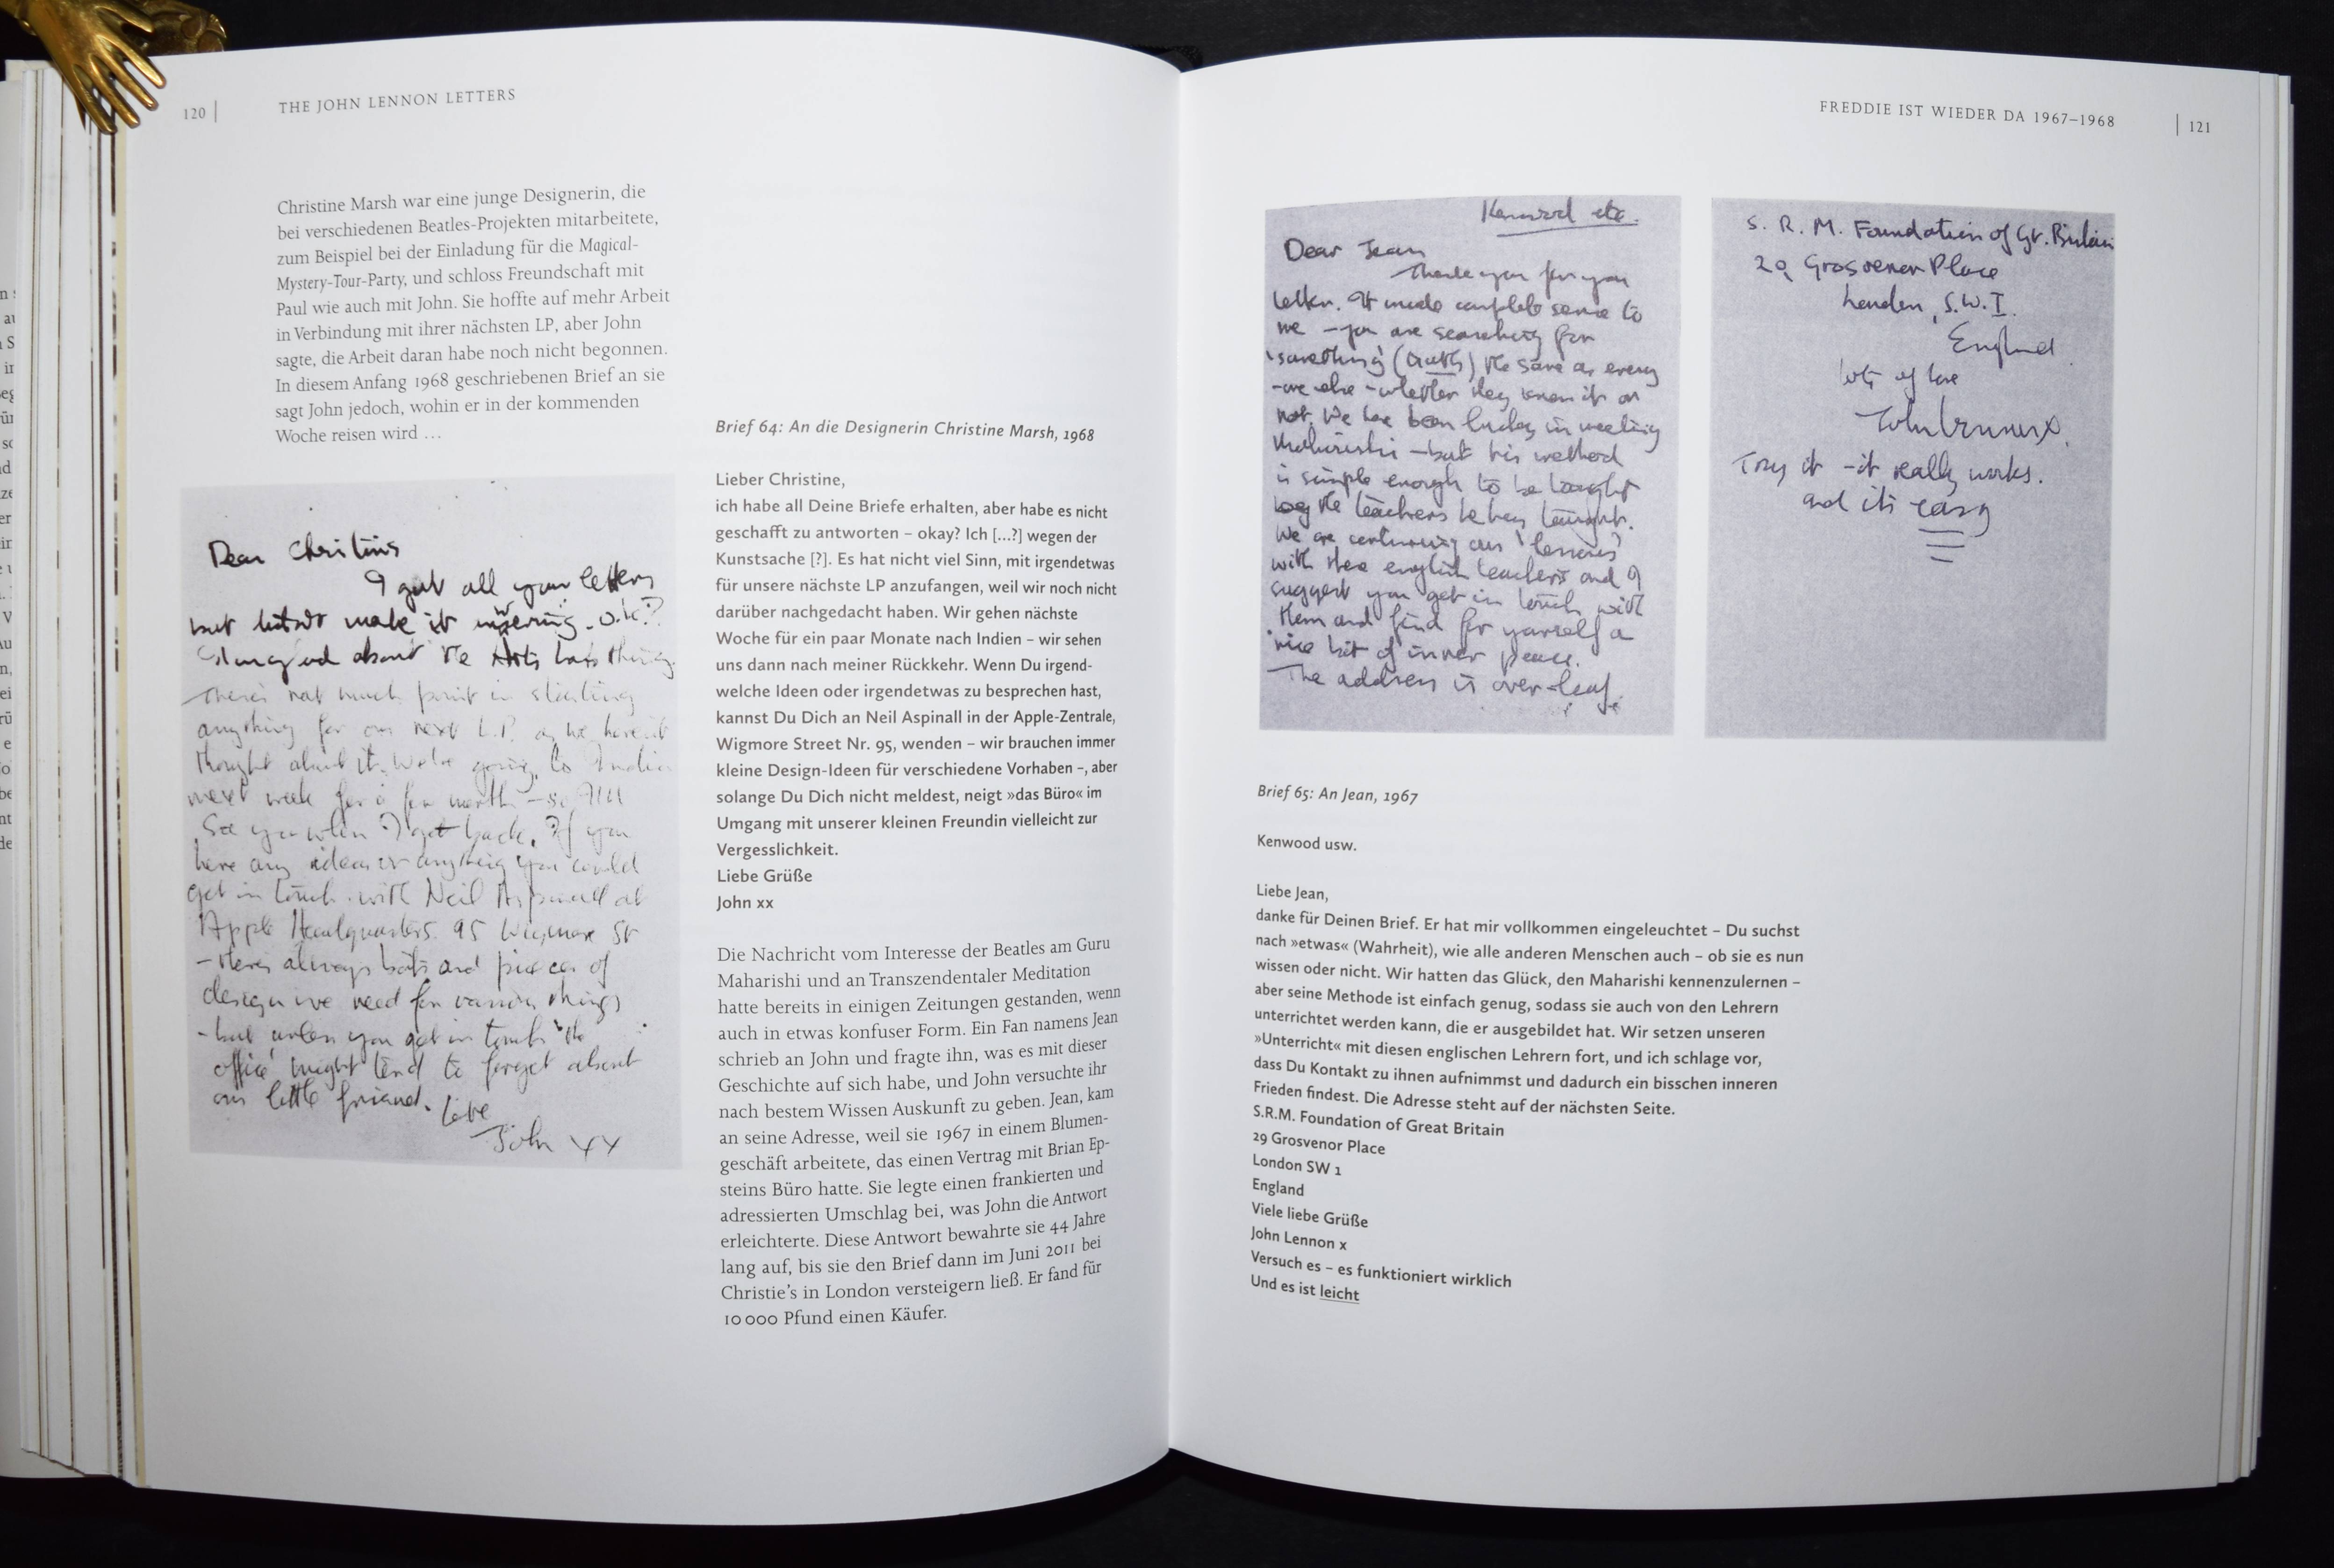 120 |
THE JOHN LENNON LETTERS
Christine Marsh war eine junge Designerin, die
bei verschiedenen Beatles-Projekten mitarbeitete,
zum Beispiel bei der Einladung für die Magical-
Mystery-Tour-Party, und schloss Freundschaft mit
Paul wie auch mit John. Sie hoffte auf mehr Arbeit
in Verbindung mit ihrer nächsten LP, aber John
sagte, die Arbeit daran habe noch nicht begonnen.
In diesem Anfang 1968 geschriebenen Brief an sie
sagt John jedoch, wohin er in der kommenden
Woche reisen wird …
Dear Christine
I got all your letters
but didn't make it answering - o.k.?
about the Arts thing.
There's not much point in starting
anything for our next L.P. as we haven't
thought about it. We're going to India
next week for a few months - so I'll
See you when I get back. If you
have any ideas or anything you could
get in touch with Neil Aspinall at
Apple Headquarters. 95 Wigmore St
- theres always bits and pieces of
design we need for various things
- but unless you get in touch 'the
office' might tend to forget about
our little friend. Love
John xx
Brief 64: An die Designerin Christine Marsh, 1968
Lieber Christine,
ich habe all Deine Briefe erhalten, aber habe es nicht
geschafft zu antworten – okay? Ich [...?] wegen der
Kunstsache [?]. Es hat nicht viel Sinn, mit irgendetwas
für unsere nächste LP anzufangen, weil wir noch nicht
darüber nachgedacht haben. Wir gehen nächste
Woche für ein paar Monate nach Indien – wir sehen
uns dann nach meiner Rückkehr. Wenn Du irgend-
welche Ideen oder irgendetwas zu besprechen hast,
kannst Du Dich an Neil Aspinall in der Apple-Zentrale,
Wigmore Street Nr. 95, wenden – wir brauchen immer
kleine Design-Ideen für verschiedene Vorhaben –, aber
solange Du Dich nicht meldest, neigt »das Büro« im
Umgang mit unserer kleinen Freundin vielleicht zur
Vergesslichkeit.
Liebe Grüße
John xx
Die Nachricht vom Interesse der Beatles am Guru
Maharishi und an Transzendentaler Meditation
hatte bereits in einigen Zeitungen gestanden, wenn
auch in etwas konfuser Form. Ein Fan namens Jean
schrieb an John und fragte ihn, was es mit dieser
Geschichte auf sich habe, und John versuchte ihr
nach bestem Wissen Auskunft zu geben. Jean, kam
an seine Adresse, weil sie 1967 in einem Blumen-
geschäft arbeitete, das einen Vertrag mit Brian Ep-
steins Büro hatte. Sie legte einen frankierten und
adressierten Umschlag bei, was John die Antwort
erleichterte. Diese Antwort bewahrte sie 44 Jahre
lang auf, bis sie den Brief dann im Juni 2011 bei
Christie's in London versteigern ließ. Er fand für
10 000 Pfund einen Käufer.
FREDDIE IST WIEDER DA 1967–1968
| 121
Kenwood etc.
Dear Jean
Thank you for your
letter. It made complete sense to
me - you are searching for
'something' (truth) the same as every
-one else - whether they know it or
not. We have been lucky in meeting
Maharishi - but his method
is simple enough to be taught
by the teachers he has taught.
We are continuing our 'lessons'
with these english teachers and I
suggest you get in touch with
them and find for yourself a
nice bit of inner peace.
The address is over-leaf.
S. R. M. Foundation of Gt. Britain
29 Grosvenor Place
London, S.W.1.
England.
lots of love
John Lennon x.
Try it - it really works.
and its easy
Brief 65: An Jean, 1967
Kenwood usw.
Liebe Jean,
danke für Deinen Brief. Er hat mir vollkommen eingeleuchtet – Du suchst
nach »etwas« (Wahrheit), wie alle anderen Menschen auch – ob sie es nun
wissen oder nicht. Wir hatten das Glück, den Maharishi kennenzulernen –
aber seine Methode ist einfach genug, sodass sie auch von den Lehrern
unterrichtet werden kann, die er ausgebildet hat. Wir setzen unseren
»Unterricht« mit diesen englischen Lehrern fort, und ich schlage vor,
dass Du Kontakt zu ihnen aufnimmst und dadurch ein bisschen inneren
Frieden findest. Die Adresse steht auf der nächsten Seite.
S.R.M. Foundation of Great Britain
29 Grosvenor Place
London SW 1
England
Viele liebe Grüße
John Lennon x
Versuch es – es funktioniert wirklich
Und es ist leicht